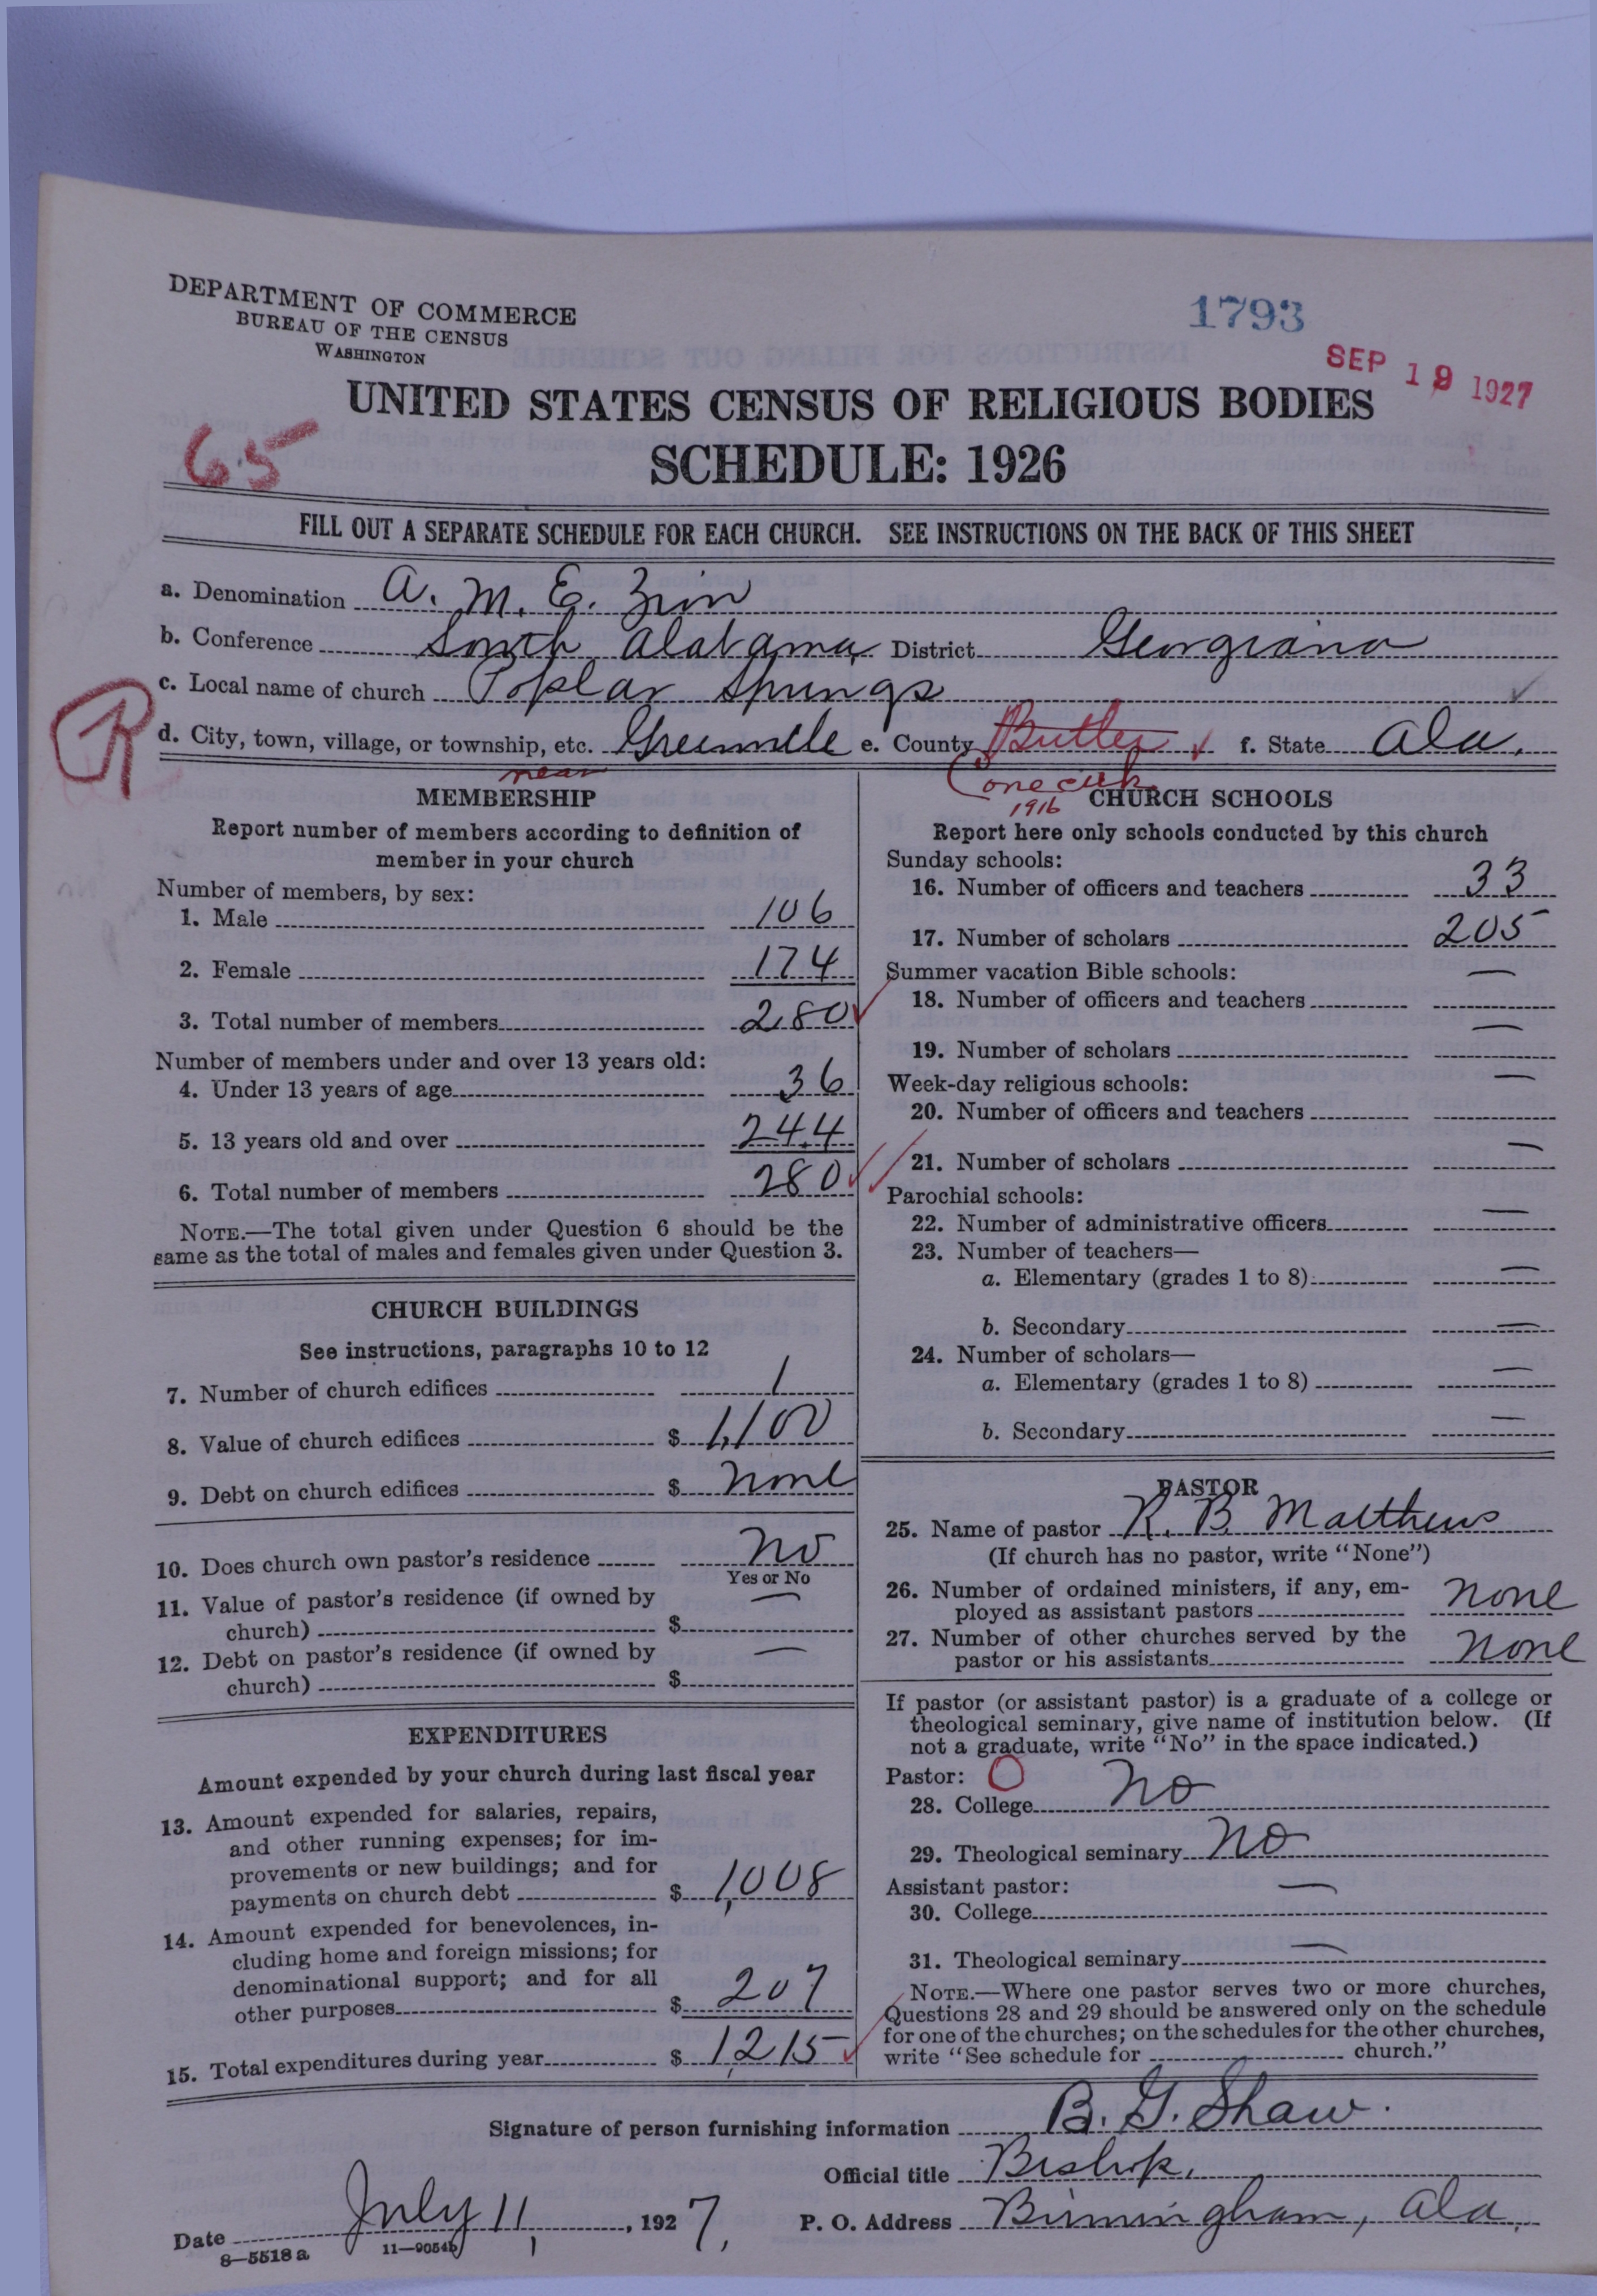 DEPARTMENT OF COMMERCE
BUREAU OF THE CENSUS
WASHINGTON
1793
SEP 19 1927
UNITED STATES CENSUS OF RELIGIOUS BODIES
SCHEDULE: 1926
65
FILL OUT A SEPARATE SCHEDULE FOR EACH CHURCH. SEE INSTRUCTIONS ON THE BACK OF THIS SHEET
a. Denomination A. M. E. Zion
b. Conference South Alabama District Georgiana
c. Local name of church Poplar Springs
R
d. City, town, village, or township, etc. Greenville e. County Butler f. State Ala.
near
Conecuh
1916
MEMBERSHIP
Report number of members according to definition of
member in your church
Number of members, by sex:
1. Male 106
2. Female 174
3. Total number of members 280
Number of members under and over 13 years old:
4. Under 13 years of age 36
5. 13 years old and over 244
6. Total number of members 280
NOTE.—The total given under Question 6 should be the
same as the total of males and females given under Question 3.
CHURCH BUILDINGS
See instructions, paragraphs 10 to 12
7. Number of church edifices 1
8. Value of church edifices $ 1,100
9. Debt on church edifices $ none
10. Does church own pastor's residence No
Yes or No
11. Value of pastor's residence (if owned by
church) $ —
12. Debt on pastor's residence (if owned by
church) $ —
EXPENDITURES
Amount expended by your church during last fiscal year
13. Amount expended for salaries, repairs,
and other running expenses; for im-
provements or new buildings; and for
payments on church debt $ 1,008
14. Amount expended for benevolences, in-
cluding home and foreign missions; for
denominational support; and for all
other purposes $ 207
15. Total expenditures during year $ 1,215
CHURCH SCHOOLS
Report here only schools conducted by this church
Sunday schools:
16. Number of officers and teachers 33
17. Number of scholars 205
Summer vacation Bible schools:
18. Number of officers and teachers —
19. Number of scholars —
Week-day religious schools:
20. Number of officers and teachers —
21. Number of scholars —
Parochial schools:
22. Number of administrative officers —
23. Number of teachers—
a. Elementary (grades 1 to 8) —
b. Secondary —
24. Number of scholars—
a. Elementary (grades 1 to 8) —
b. Secondary —
PASTOR
25. Name of pastor R. B. Matthews
(If church has no pastor, write "None")
26. Number of ordained ministers, if any, em-
ployed as assistant pastors none
27. Number of other churches served by the
pastor or his assistants none
If pastor (or assistant pastor) is a graduate of a college or
theological seminary, give name of institution below. (If
not a graduate, write "No" in the space indicated.)
Pastor: O
28. College No
29. Theological seminary No
Assistant pastor:
30. College —
31. Theological seminary —
NOTE.—Where one pastor serves two or more churches,
Questions 28 and 29 should be answered only on the schedule
for one of the churches; on the schedules for the other churches,
write "See schedule for church."
Signature of person furnishing information B. G. Shaw.
Official title Bishop,
Date July 11, 1927, P. O. Address Birmingham, Ala.
8—5518 a 11—9054b